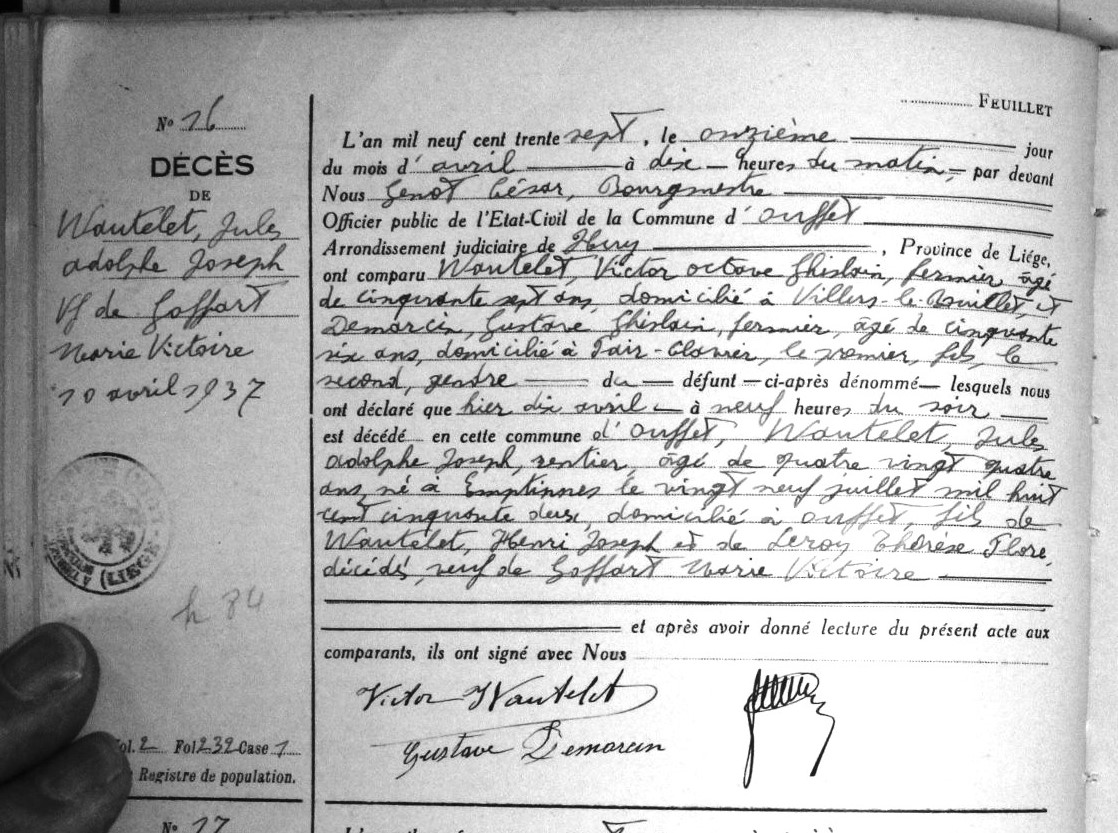 FEUILLET
N° 16
DÉCÈS
DE
Wautelet, Jules
Adolphe Joseph
Vf de Goffart
Marie Victoire
10 avril 1937
(LIÉGE)
h 84
Vol. 2 Fol 232 Case 1
Registre de population.
N° 17
L'an mil neuf cent trente sept, le onzième jour
du mois d'avril à dix heures du matin, par devant
Nous Genot César, Bourgmestre
Officier public de l'Etat-Civil de la Commune d'Ouffet
Arrondissement judiciaire de Huy, Province de Liége,
ont comparu Wautelet, Victor Octave Ghislain, fermier, âgé
de cinquante sept ans, domicilié à Villers-le-Bouillet, et
Demarcin, Gustave Ghislain, fermier, âgé de cinquante
six ans, domicilié à Clavier, le premier, fils, le
second, gendre du défunt ci-après dénommé lesquels nous
ont déclaré que hier dix avril à neuf heures du soir
est décédé en cette commune d'Ouffet, Wautelet, Jules
Adolphe Joseph, rentier, âgé de quatre vingt quatre
ans, né à Emptinnes le vingt neuf juillet mil huit
cent cinquante deux, domicilié à Ouffet, fils de
Wautelet, Henri Joseph et de Leroy Thérèse Flore,
décédés, veuf de Goffart Marie Victoire
et après avoir donné lecture du présent acte aux
comparants, ils ont signé avec Nous
Victor Wautelet
Gustave Demarcin